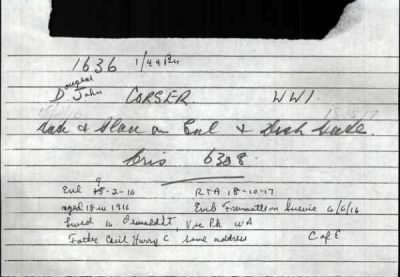 1636 1/44Bn
Douglas
D John CORSER. WW1.
Date & Place on Enl & Disch
6308.
Enl 8-2-16 RTA 18-10-17
aged 18 in 1916 Emb Fremantle on Suevic 6/6/16
lived 16 Oswald St, Vic Pk WA
Father Cecil Harry C same address C of E